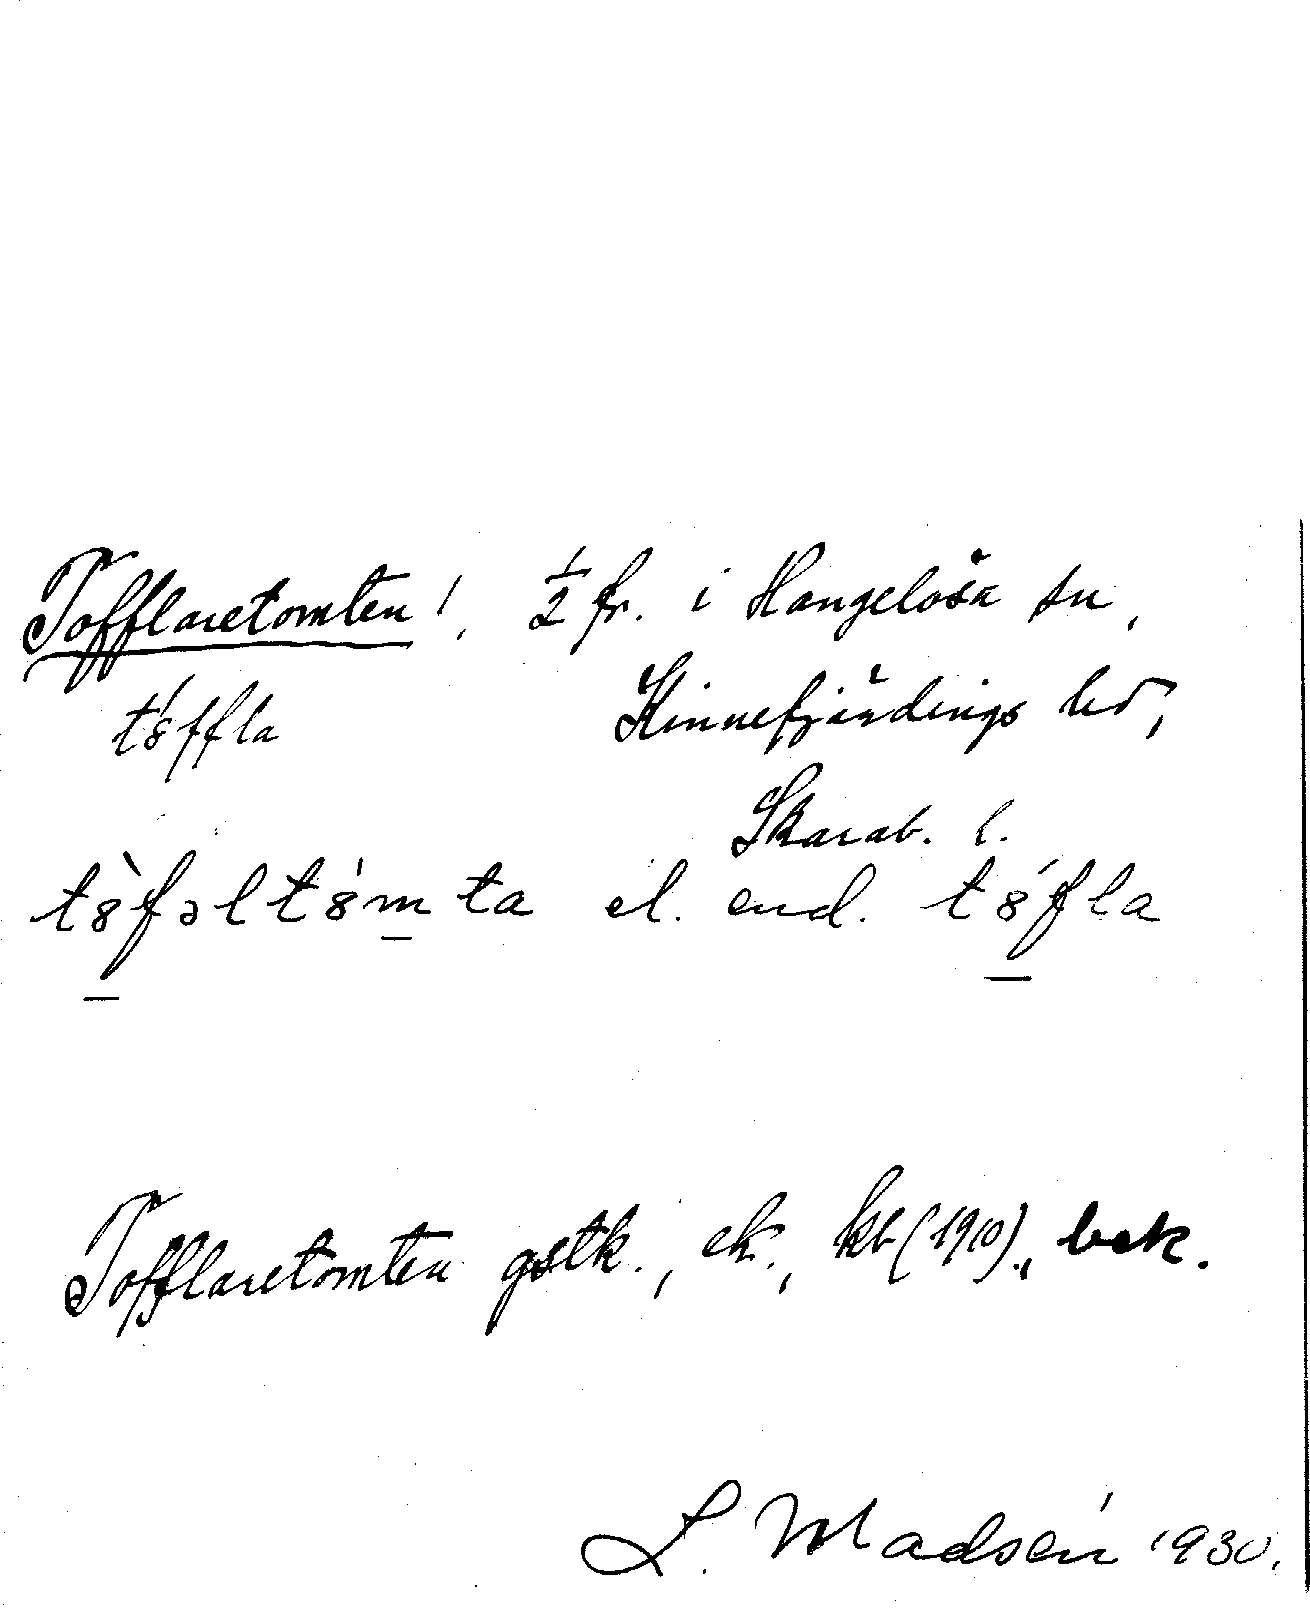 Tofflaretomten!, ½ fr. i Hangelösa sn,
tȣ́ffla Kinnefjärdings hd,
Skarab. l.
tȣ̀fəltȣ́mta el. end. tȣ́fla
Tofflaretomten gstk., ek., kb (1910)., bek.
L. Madsén 1930.